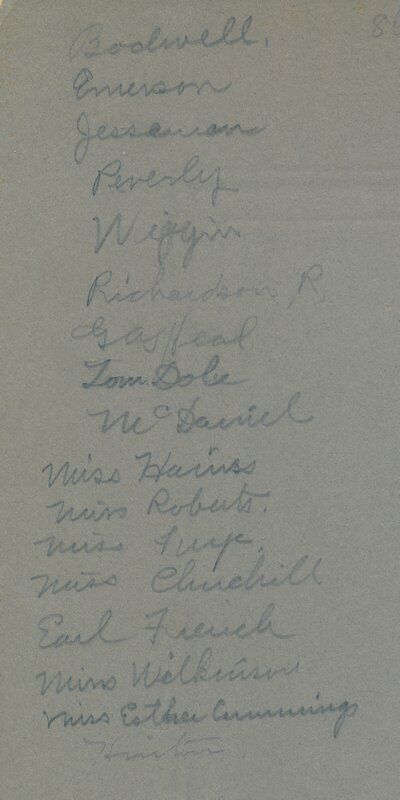 Bodwell.
Emerson
Jesseman
Peverly
Wiggin
Richardson R.
Tom Dole
McDaniel
Miss Hainss
Miss Roberts.
Miss
Miss Churchill
Earl French
Miss Wilkinson
Miss Esther Cummings